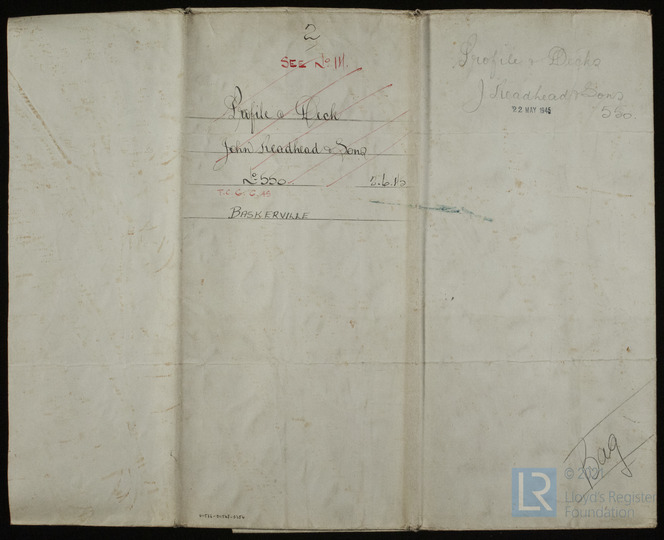 2
SEE No 111.
Profile & Deck
John Readhead & Sons
No 550
T.C.C.
BASKERVILLE
Profile & Decks
J. Readhead & Sons
22 MAY 1945
550
Bag
LR
© 2021
Lloyd's Register
Foundation